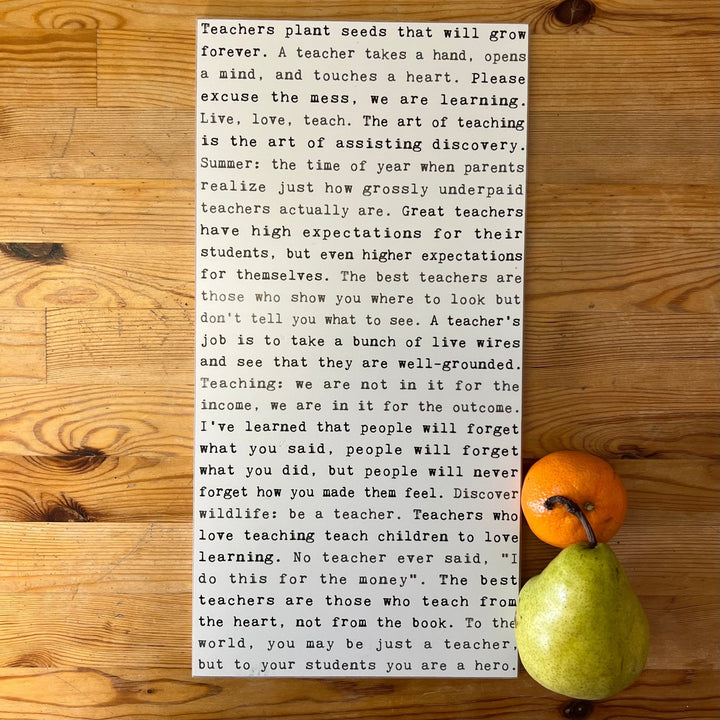 Teachers plant seeds that will grow
forever. A teacher takes a hand, opens
a mind, and touches a heart. Please
excuse the mess, we are learning.
Live, love, teach. The art of teaching
is the art of assisting discovery.
Summer: the time of year when parents
realize just how grossly underpaid
teachers actually are. Great teachers
have high expectations for their
students, but even higher expectations
for themselves. The best teachers are
those who show you where to look but
don't tell you what to see. A teacher's
job is to take a bunch of live wires
and see that they are well-grounded.
Teaching: we are not in it for the
income, we are in it for the outcome.
I've learned that people will forget
what you said, people will forget
what you did, but people will never
forget how you made them feel. Discover
wildlife: be a teacher. Teachers who
love teaching teach children to love
learning. No teacher ever said, "I
do this for the money". The best
teachers are those who teach from
the heart, not from the book. To the
world, you may be just a teacher,
but to your students you are a hero.